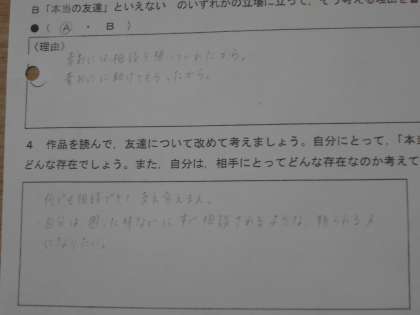 B「本当の友達」といえない のいずれかの立場に立って、そう考える理由を書
●( Ⓐ ・ B )
(理由)
青おには相談を
青おにに助けてもらったから。
4 作品を読んで、友達について改めて考えましょう。自分にとって、「本
どんな存在でしょう。また、自分は、相手にとってどんな存在なのか考えて
・何でも相談できて 支え合える人。
・自分は 困った時ないに すぐ相談されるような、頼られる人
になりたい。